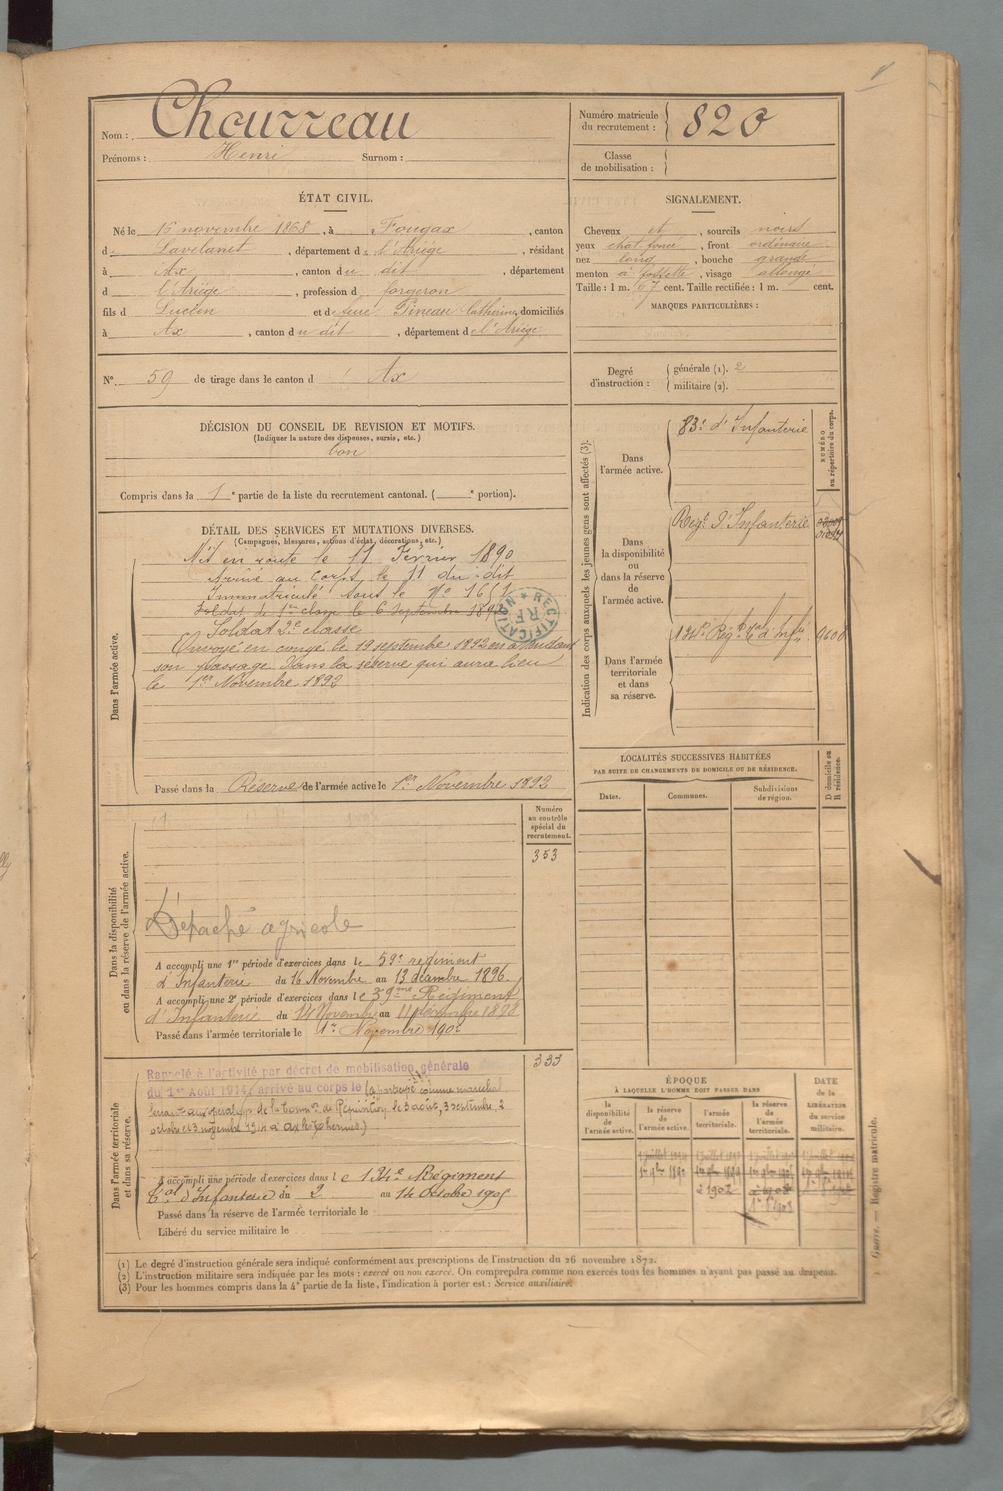 Nom : Chourreau
Prénoms : Henri Surnom :
Numéro matricule du recrutement : 820
Classe de mobilisation :
ÉTAT CIVIL.
Né le 16 novembre 1868, à Fougax, canton
de Lavelanet, département de l'Ariège, résidant
à Ax, canton du dit, département
d l'Ariège, profession d forgeron
fils d Lucien et d feue Pineau Catherine, domiciliés
à Ax, canton du dit, département de l'Ariège
N° 59 de tirage dans le canton d Ax
SIGNALEMENT.
Cheveux et, sourcils noirs
yeux chat. foncé, front ordinaire
nez long, bouche grande
menton à fossette, visage allongé
Taille : 1 m. 67 cent. Taille rectifiée : 1 m. cent.
MARQUES PARTICULIÈRES :
Degré d'instruction : générale (1). 2
militaire (2).
DÉCISION DU CONSEIL DE REVISION ET MOTIFS.
(Indiquer la nature des dispenses, sursis, etc.)
bon
Compris dans la 1e partie de la liste du recrutement cantonal. ( e portion).
DÉTAIL DES SERVICES ET MUTATIONS DIVERSES.
(Campagnes, blessures, actions d'éclat, décorations, etc.)
Dans l'armée active.
Mis en route le 11 Février 1890
Arrivé au corps le 11 du dit
Immatriculé sous le N° 1651
Soldat de 1re classe le 6 septembre
Soldat 2e classe
RECTIFICATION RF
Envoyé en congé le 19 septembre 1892 en attendant
son passage dans la réserve qui aura lieu
le 1er Novembre 1892
Passé dans la Réserve de l'armée active le 1er Novembre 1892
Indication des corps auxquels les jeunes gens sont affectés (3).
NUMÉRO au répertoire du corps.
Dans l'armée active.
83e d'Infanterie
Dans la disponibilité ou dans la réserve de l'armée active.
Régt d'Infanterie
Dans l'armée territoriale et dans sa réserve.
134e Régt tal d'Infie
LOCALITÉS SUCCESSIVES HABITÉES
PAR SUITE DE CHANGEMENTS DE DOMICILE OU DE RÉSIDENCE.
Dates. Communes. Subdivisions de région. D domicile ou R résidence.
Dans la disponibilité ou dans la réserve de l'armée active.
Numéro au contrôle spécial du recrutement.
353
Détaché agricole
A accompli une 1re période d'exercices dans le 59e régiment
d'Infanterie du 16 Novembre au 13 décembre 1896
A accompli une 2e période d'exercices dans le 59me Régiment
d'Infanterie du 14 Novembre au 11 décembre 1898
Passé dans l'armée territoriale le 1er Novembre 190
Dans l'armée territoriale et dans sa réserve.
333
Rappelé à l'activité par décret de mobilisation générale
du 1er Août 1914, arrivé au corps le (a participé comme maréchal
ferrant aux opérations de la Common de Réquisition le 3 août, 3 septembre, 2
octobre et 3 novembre 1914 à Ax les Thermes.)
A accompli une période d'exercices dans le 134e Régiment
Tal d'Infanterie du 2 au 14 Octobre 1905
Passé dans la réserve de l'armée territoriale le
Libéré du service militaire le
ÉPOQUE
À LAQUELLE L'HOMME DOIT PASSER DANS
la disponibilité de l'armée active.
la réserve de l'armée active.
l'armée territoriale.
la réserve de l'armée territoriale.
DATE de la LIBÉRATION du service militaire.
(1) Le degré d'instruction générale sera indiqué conformément aux prescriptions de l'instruction du 26 novembre 1872.
(2) L'instruction militaire sera indiquée par les mots : exercé ou non exercé. On comprendra comme non exercés tous les hommes n'ayant pas passé au drapeau.
(3) Pour les hommes compris dans la 4e partie de la liste, l'indication à porter est : Service auxiliaire.
Guerre. — Registre matricule.